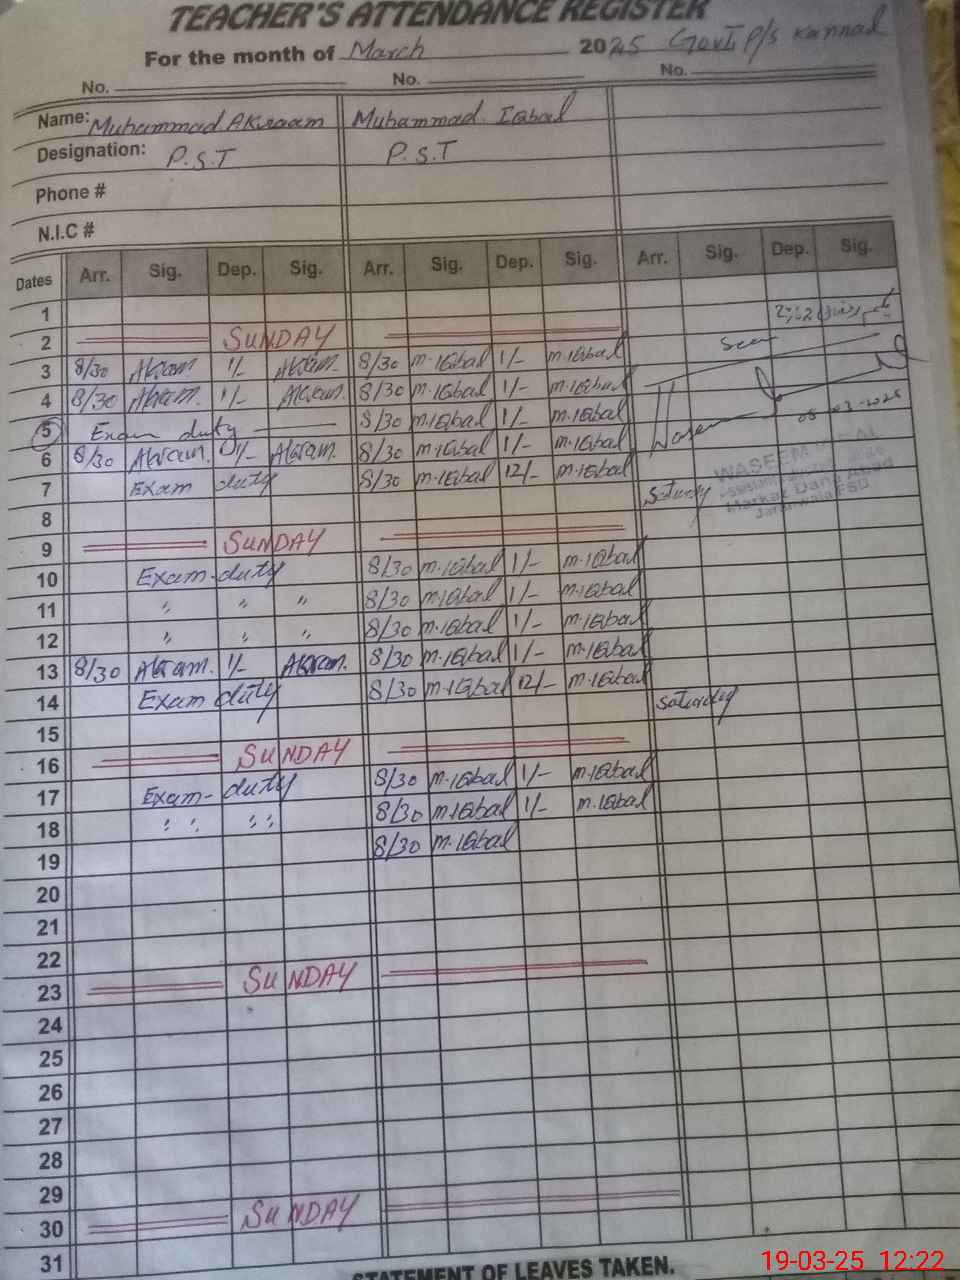 TEACHER'S ATTENDANCE REGISTER
For the month of March 2025 Govt P/s Kannad
No. No. No.
Name: Muhammad Akraam Muhammad Iqbal
Designation: P.S.T P.S.T
Phone #
N.I.C #
Dates Arr. Sig. Dep. Sig. Arr. Sig. Dep. Sig. Arr. Sig. Dep. Sig.
1
2 SUNDAY
3 8/30 Akram 1/- Akram. 8/30 M.Iqbal 1/- M.Iqbal Seen
4 8/30 Akram. 1/- Akram. 8/30 M.Iqbal 1/- M.Iqbal
5 Exam duty 8/30 M.Iqbal 1/- M.Iqbal 05-03-2025
6 8/30 Akram. 1/- Akram. 8/30 M.Iqbal 1/- M.Iqbal WASEEM
7 Exam duty 8/30 M.Iqbal 12/- M.Iqbal Markaz
8 Jaranwala FSD
9 SUNDAY
10 Exam duty 8/30 M.Iqbal 1/- M.Iqbal
11 " " " 8/30 M.Iqbal 1/- M.Iqbal
12 " " " 8/30 M.Iqbal 1/- M.Iqbal
13 8/30 Akram. 1/- Akram. 8/30 M.Iqbal 1/- M.Iqbal
14 Exam duty 8/30 M.Iqbal 12/- M.Iqbal Saturday
15
16 SUNDAY
17 Exam- duty 8/30 M.Iqbal 1/- M.Iqbal
18 " " " 8/30 M.Iqbal 1/- M.Iqbal
19 8/30 M.Iqbal
20
21
22
23 SUNDAY
24
25
26
27
28
29
30 SUNDAY
31
STATEMENT OF LEAVES TAKEN.
19-03-25 12:22